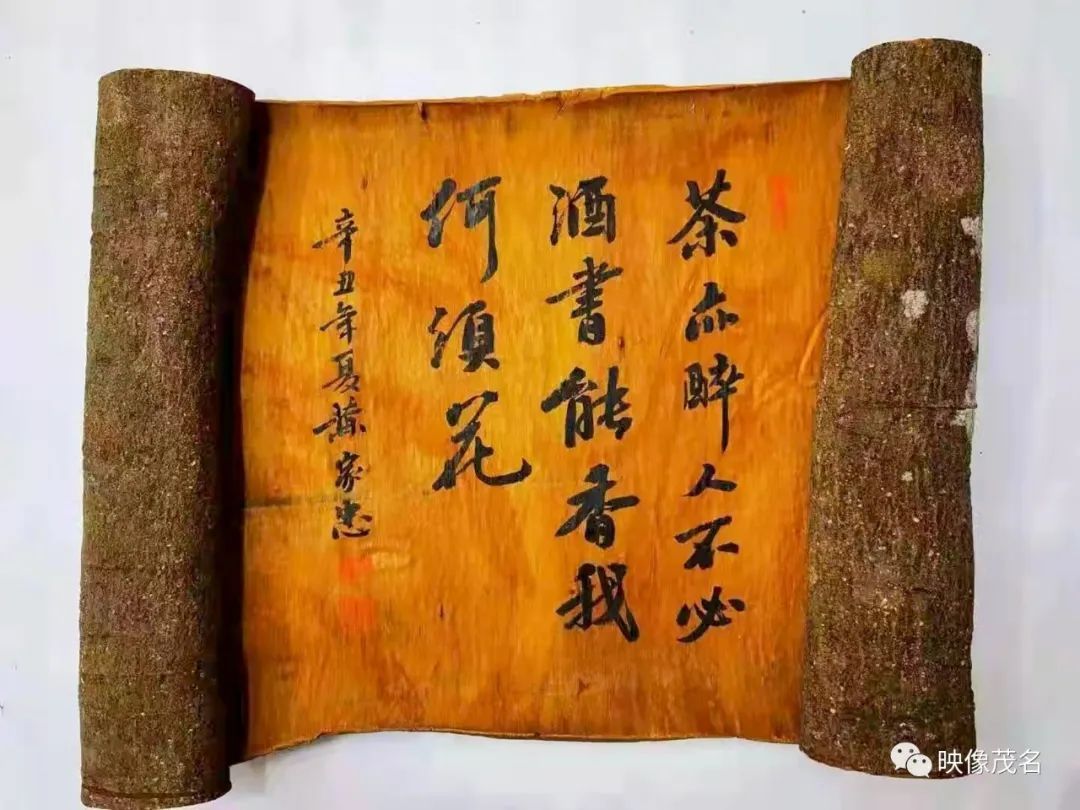 茶亦醉人不必
酒書能香我
何須花
辛丑年夏蘇家忠
映像茂名